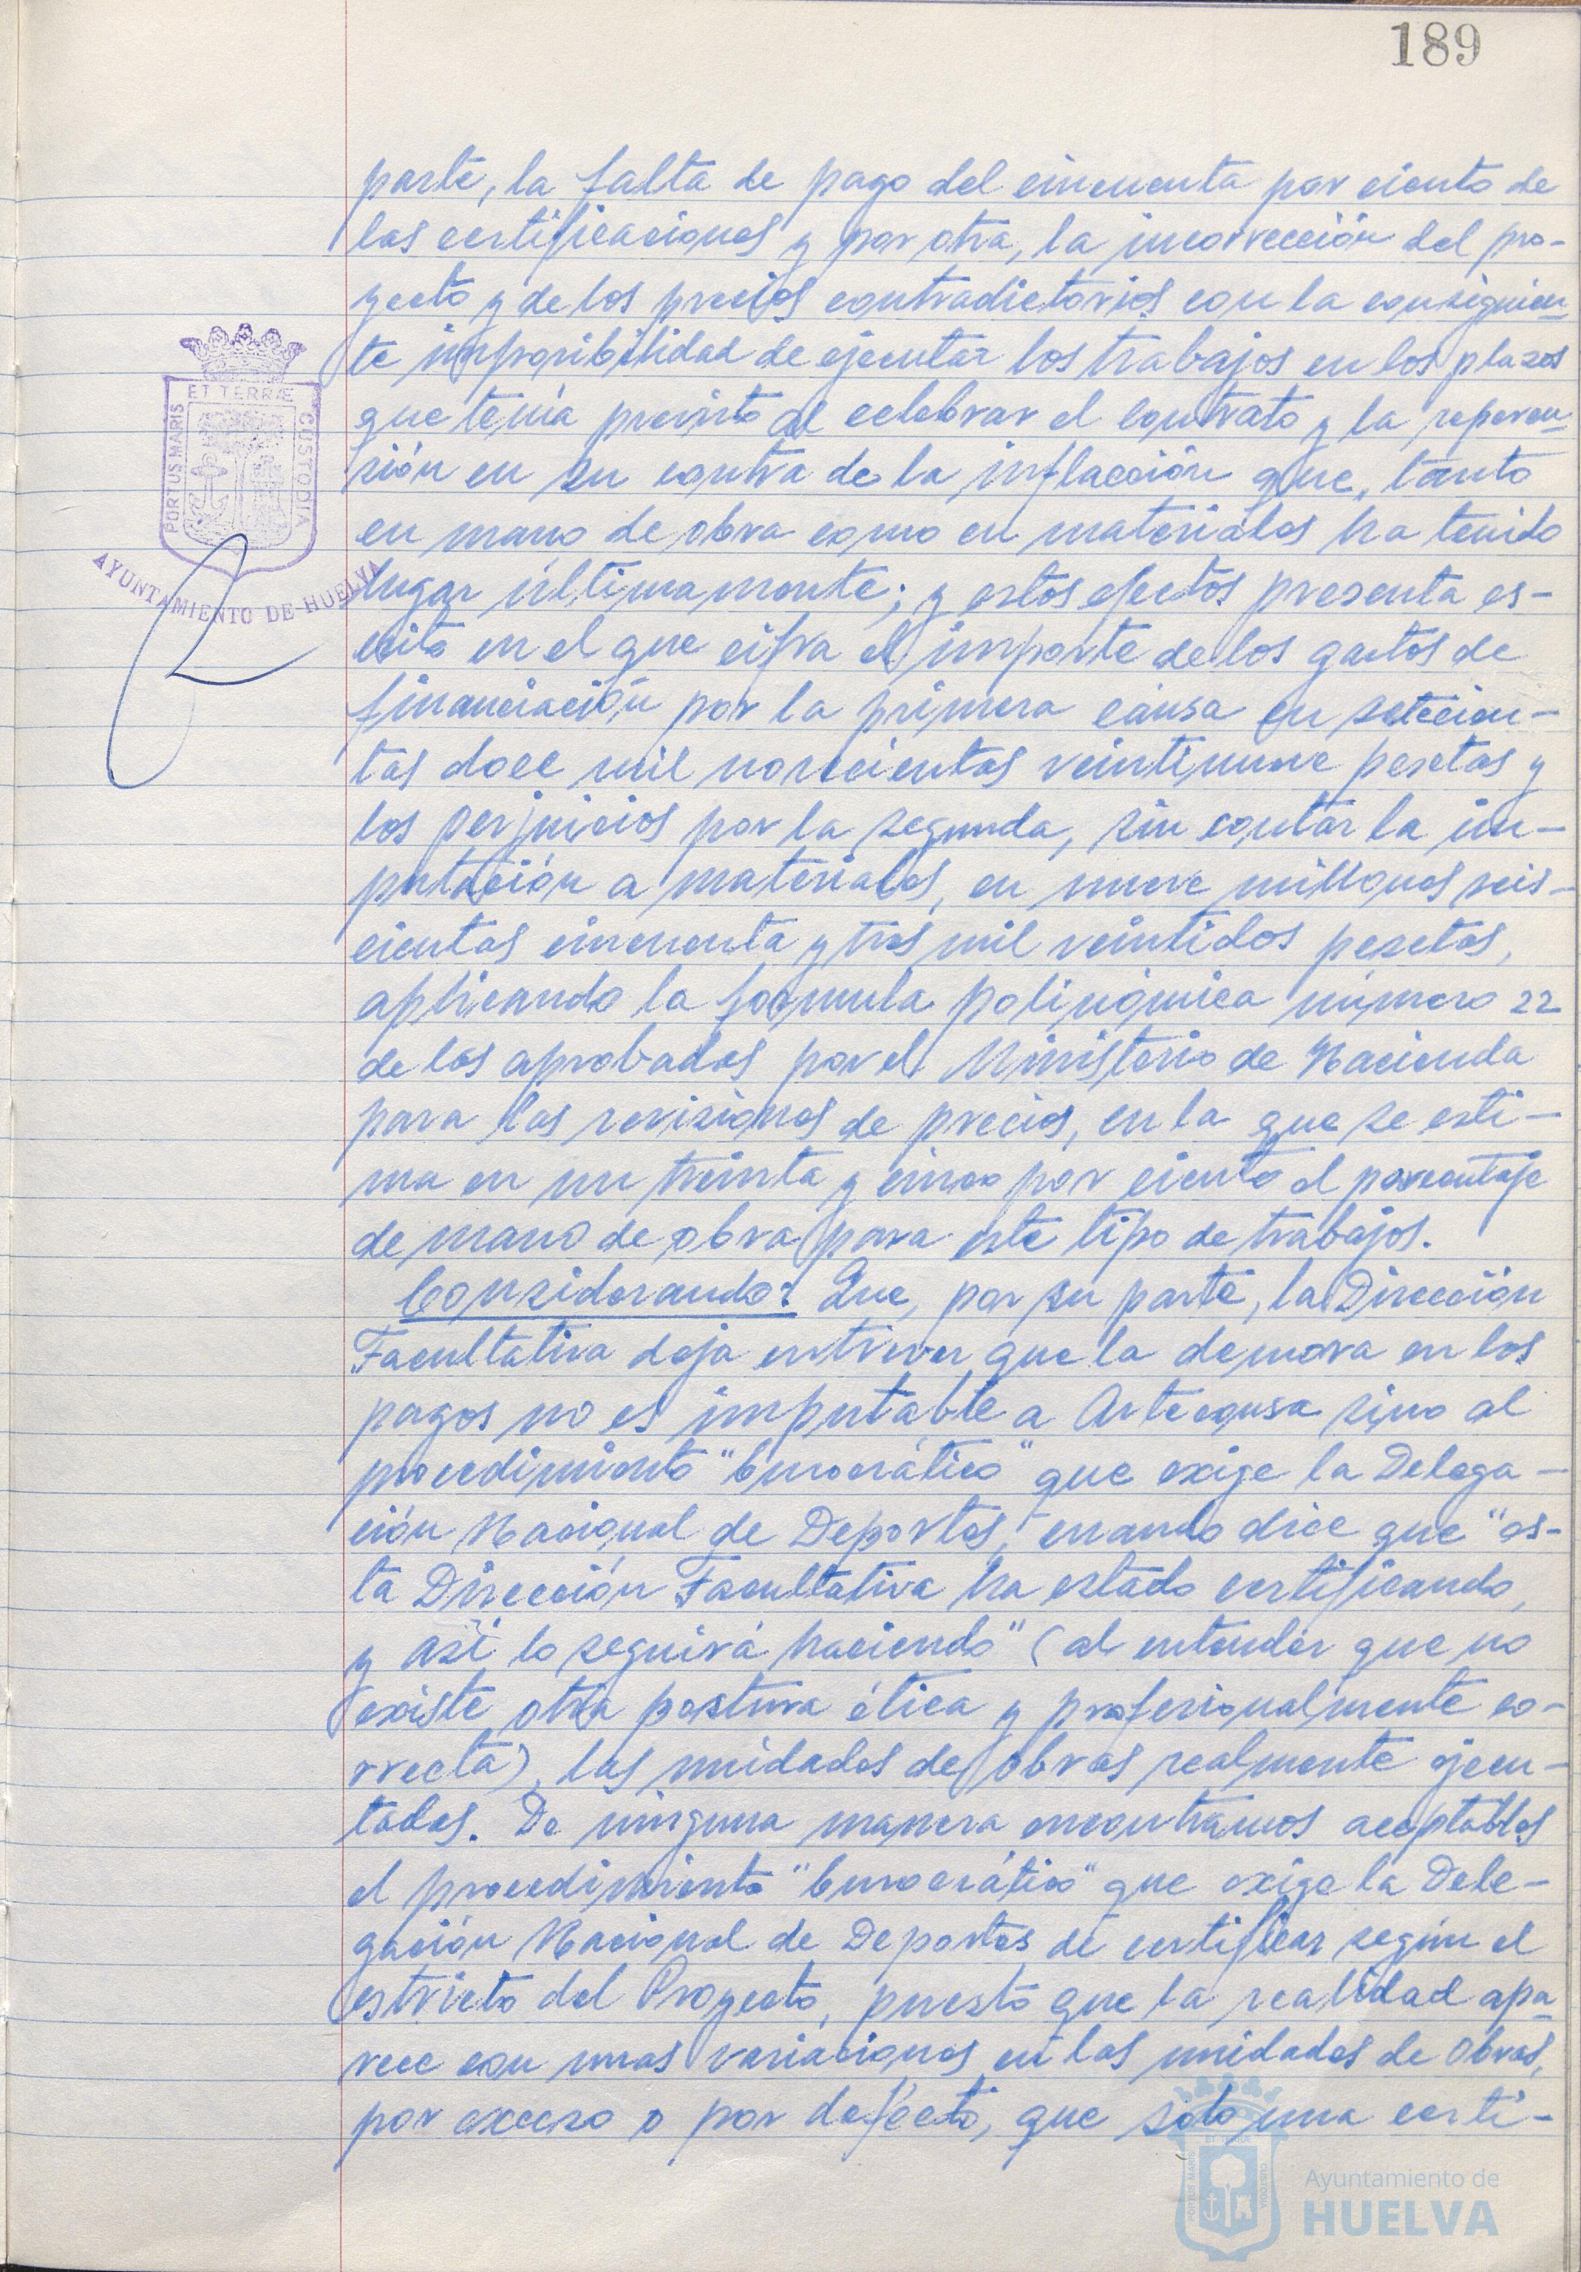 189
parte, la falta de pago del cincuenta por ciento de
las certificaciones y por otra, la incorrección del pro-
yecto y de los precios contradictorios con la consiguien-
te imposibilidad de ejecutar los trabajos en los plazos
que tenía previsto al celebrar el contrato y la repercu-
sión en su contra de la inflacción que, tanto
en mano de obra como en materiales ha tenido
lugar últimamente; y estos efectos presenta es-
crito en el que cifra el importe de los gastos de
financiación por la primera causa en setecien-
tas doce mil novecientas veintinueve pesetas y
los perjuicios por la segunda, sin contar la im-
putación a materiales, en nueve millones seis-
cientas cincuenta y tres mil veintidos pesetas,
aplicando la formula polinómica número 22
de las aprobadas por el Ministerio de Hacienda
para las revisiones de precios, en la que se esti-
ma en un treinta y cinco por ciento el porcentaje
de mano de obra para este tipo de trabajos.
Considerando: Que, por su parte, la Dirección
Facultativa deja entrever que la demora en los
pagos no es imputable a Arteconsa sino al
procedimiento "burocrático" que exige la Delega-
ción Nacional de Deportes, cuando dice que "es-
ta Dirección Facultativa ha estado certificando,
y así lo seguirá haciendo" (al entender que no
existe otra postura ética y profesionalmente co-
rrecta), las unidades de obras realmente ejecu-
tadas. De ninguna manera encontramos aceptables
el procedimiento "burocrático" que exige la Dele-
gación Nacional de Deportes de certificar según el
estricto del Proyecto, puesto que la realidad apa-
rece con unas variaciones en las unidades de obras,
por exceso o por defecto, que solo una certi-
ET TERRÆ
PORTUS MARIS
CUSTODIA
AYUNTAMIENTO DE HUELVA
Ayuntamiento de
HUELVA